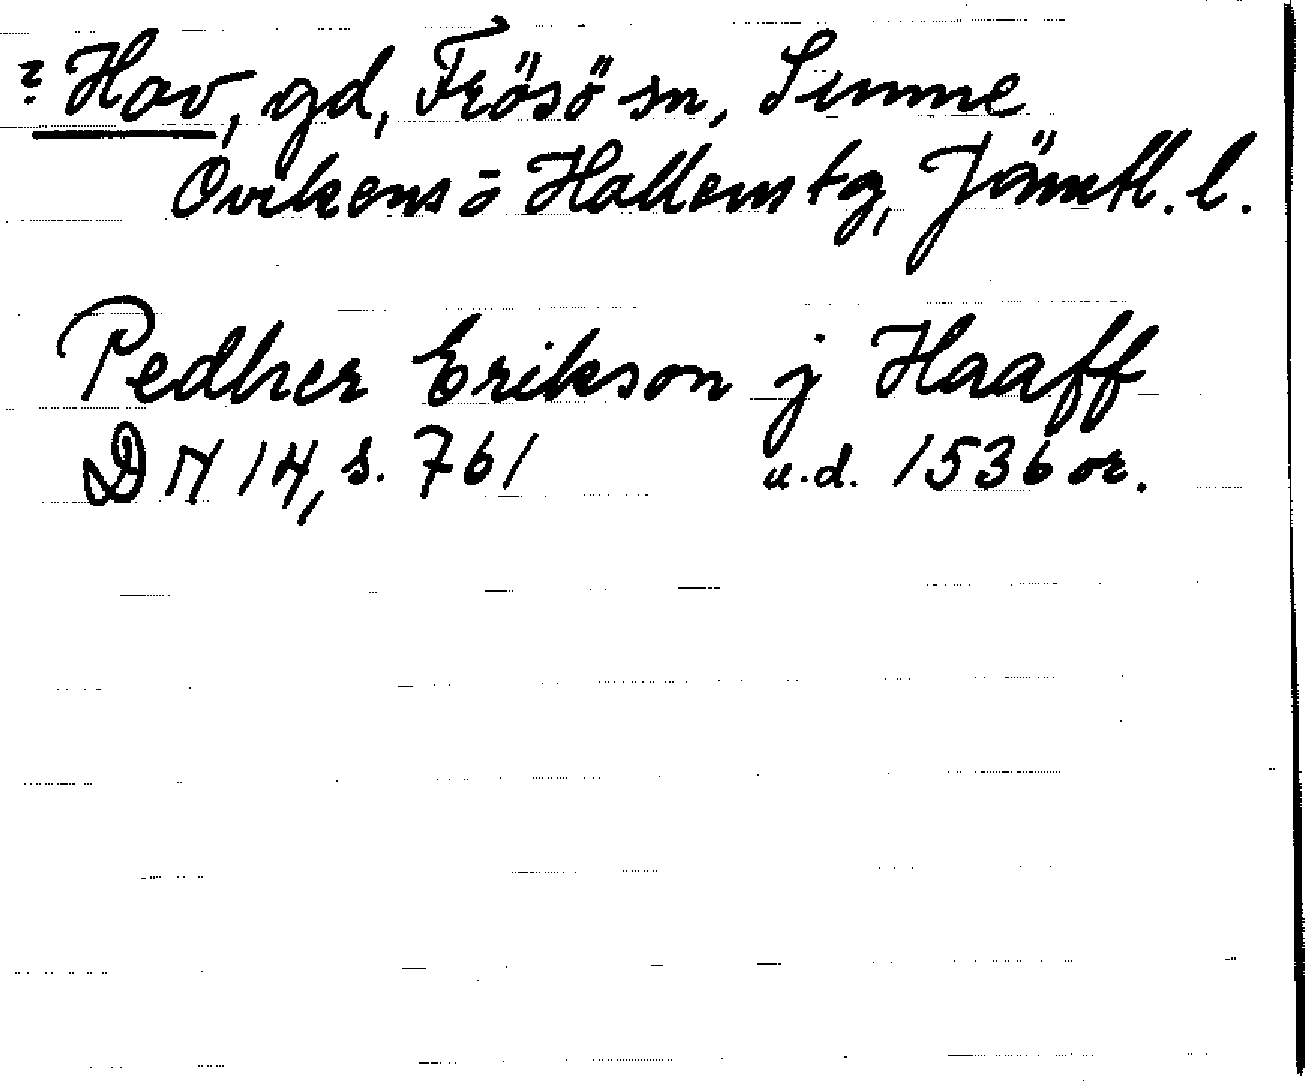 ? Hov, gd, Frösö sn, Sunne
Ovikens o Hallens tg, Jämtl. l.
Pedher Erikson j Haaff
DN 14, s. 761 u.d. 1536 or.